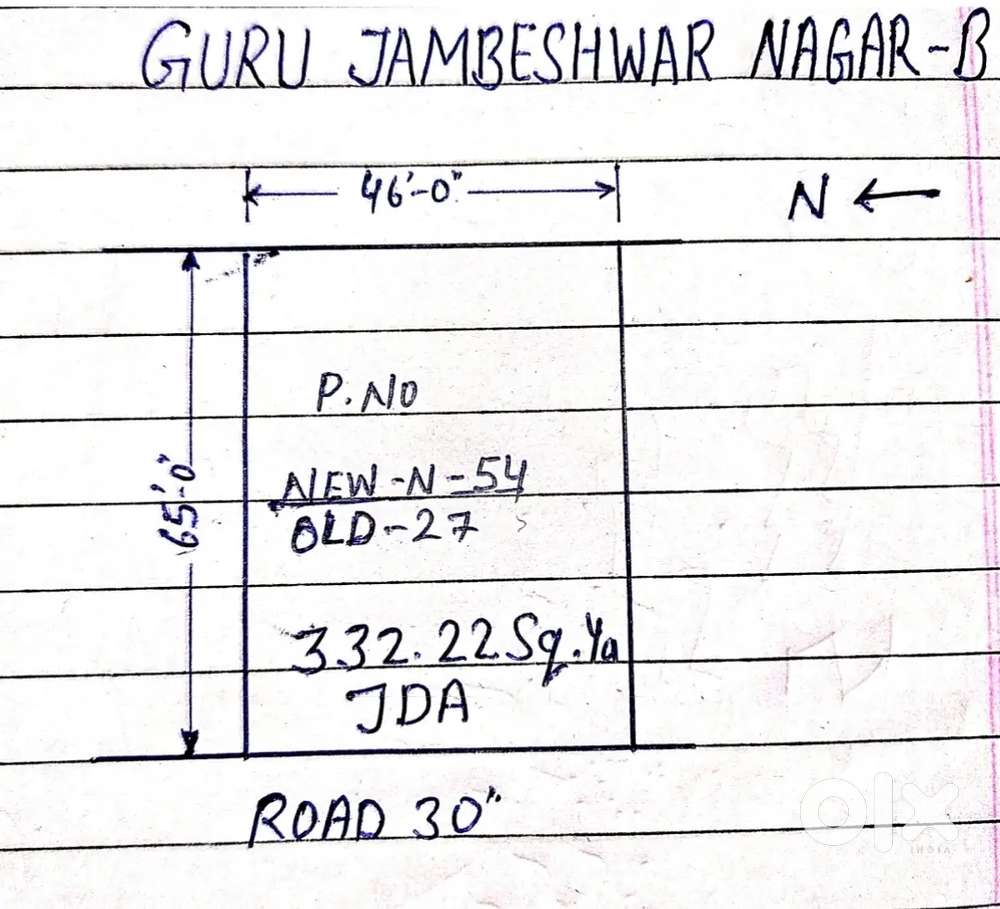 GURU JAMBESHWAR NAGAR-B
46'-0"
N
65'-0"
P.NO
NEW-N-54
OLD-27
332.22 Sq.Ya
JDA
ROAD 30"
olx
INDIA